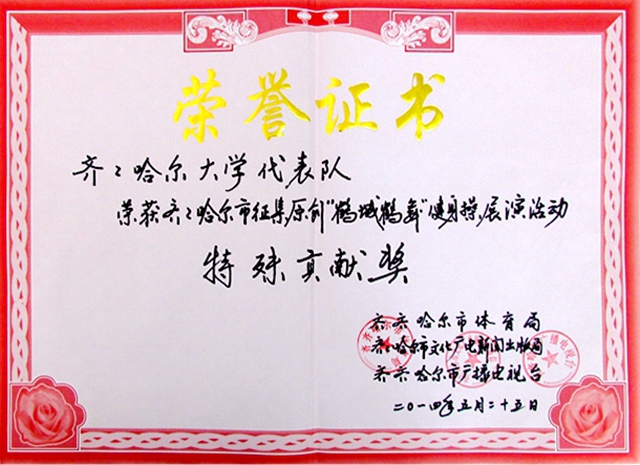 荣誉证书
齐々哈尔大学代表队
荣获齐々哈尔市征集原创“鹤城鹤舞”健身操展演活动
特殊贡献奖
齐齐哈尔市体育局
齐々哈尔市文化广电新闻出版局
齐齐哈尔市广播电视台
二〇一四年五月二十五日